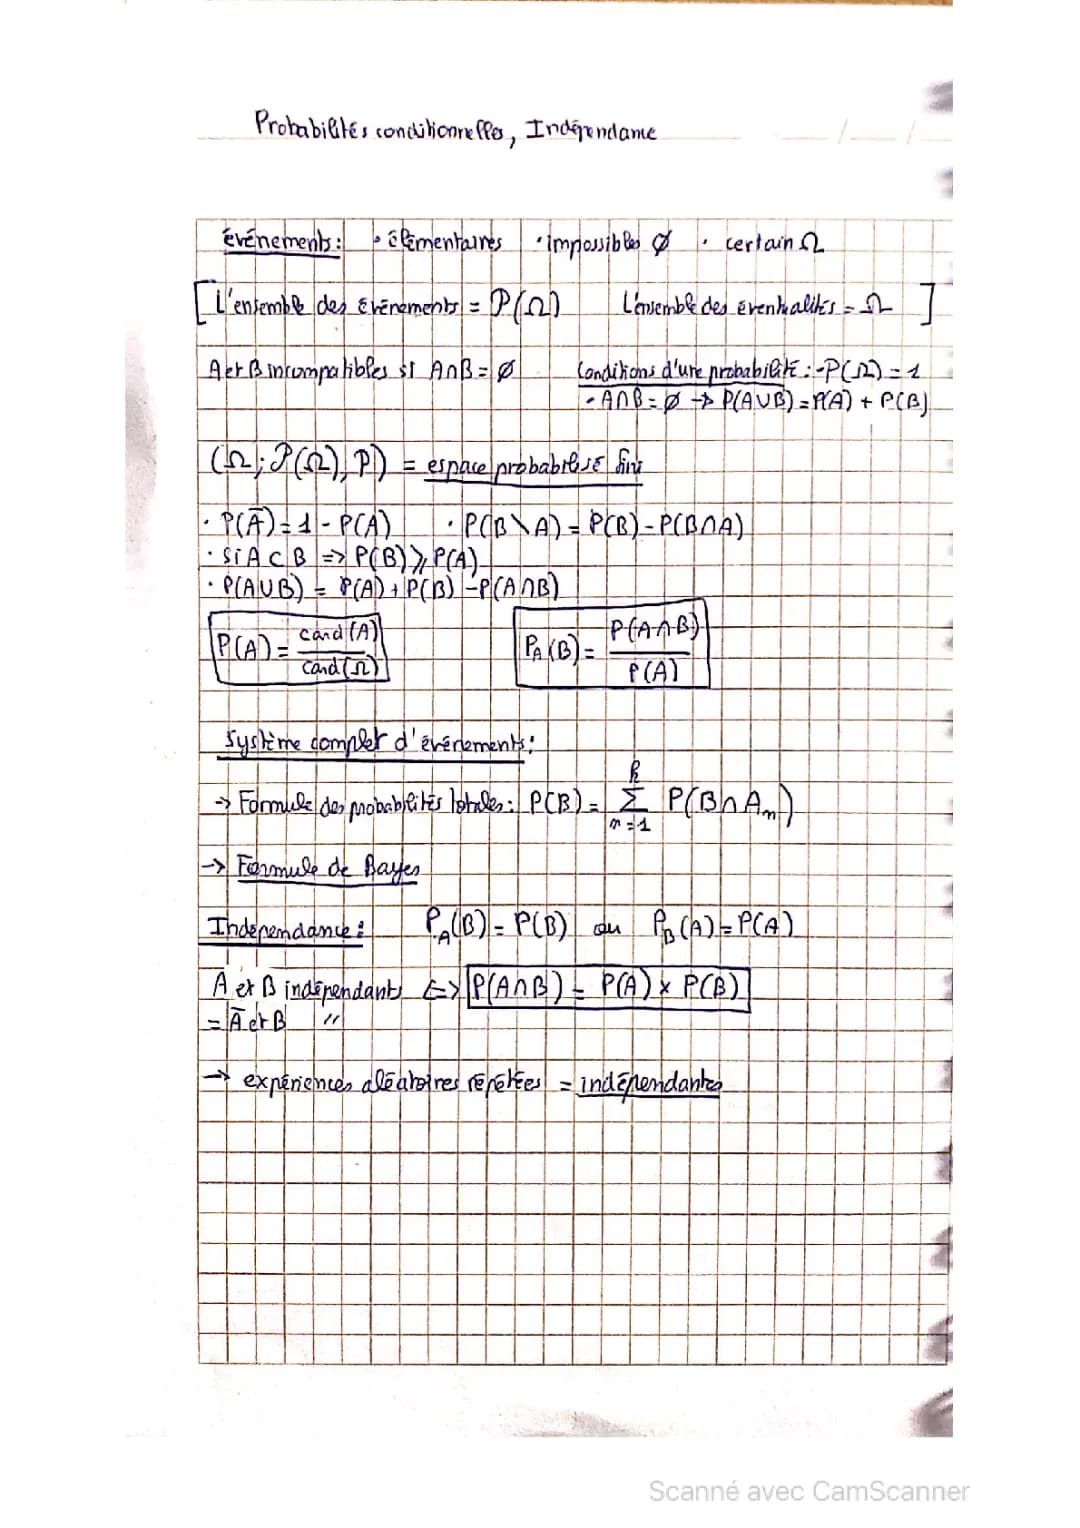 Probabilités conditionnelles, Indépendance
__/__/__
événements : • élémentaires • impossibles ∅ • certain Ω
[L'ensemble des événements = P(Ω) L'ensemble des éventualités = Ω ]
A et B incompatibles si A∩B = ∅ Conditions d'une probabilité : - P(Ω) = 1
• A∩B = ∅ → P(A∪B) = P(A) + P(B)
(Ω ; P(Ω), P) = espace probabilisé fini
• P(Ā) = 1 - P(A) • P(B\A) = P(B) - P(B∩A)
• Si A ⊂ B => P(B) ⩾ P(A)
• P(A∪B) = P(A) + P(B) - P(A∩B)
P(A) = card(A) / card(Ω) P_A(B) = P(A∩B) / P(A)
Système complet d'événements :
→ Formule des probabilités totales : P(B) = Σ_{n=1}^{k} P(B∩A_n)
→ Formule de Bayes
Indépendance : P_A(B) = P(B) ou P_B(A) = P(A)
A et B indépendants <=> P(A∩B) = P(A) × P(B)
= Ā et B "
→ expériences aléatoires répétées = indépendantes
Scanné avec CamScanner